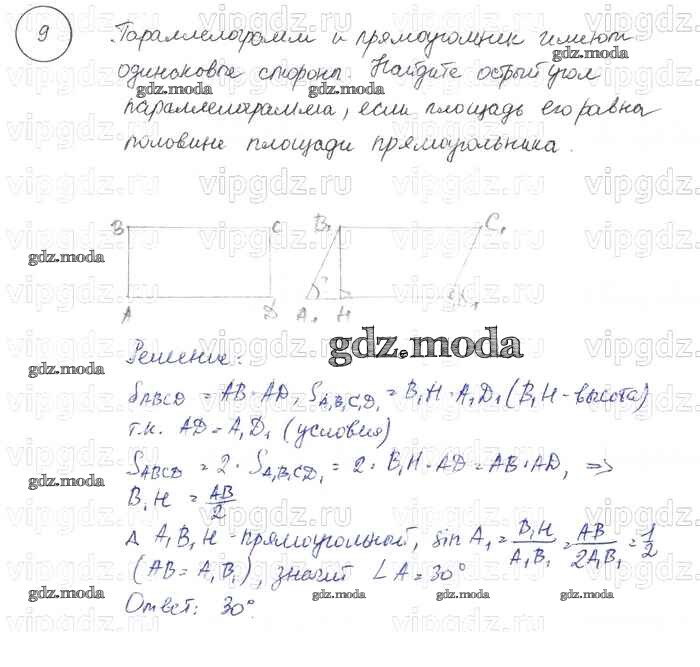 9
Параллелограмм и прямоугольник имеют
одинаковые стороны. Найдите острый угол
параллелограмма, если площадь его равна
половине площади прямоугольника.
B C B₁ C₁
A D A₁ H D₁
gdz.moda
Решение:
S_ABCD = AB · AD, S_A₁B₁C₁D₁ = B₁H · A₁D₁ (B₁H - высота)
т.к. AD = A₁D₁ (условия)
S_ABCD = 2 · S_A₁B₁CD₁ = 2 · B₁H · AD = AB · AD, ⇒
B₁H = AB/2
Δ A₁B₁H - прямоугольной, sin A₁ = B₁H/A₁B₁ = AB/2A₁B₁ = 1/2
(AB = A₁B₁), значит ∠A = 30°
Ответ: 30°.